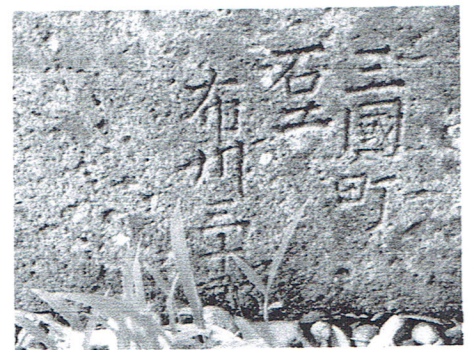 三國町
石工
布川三